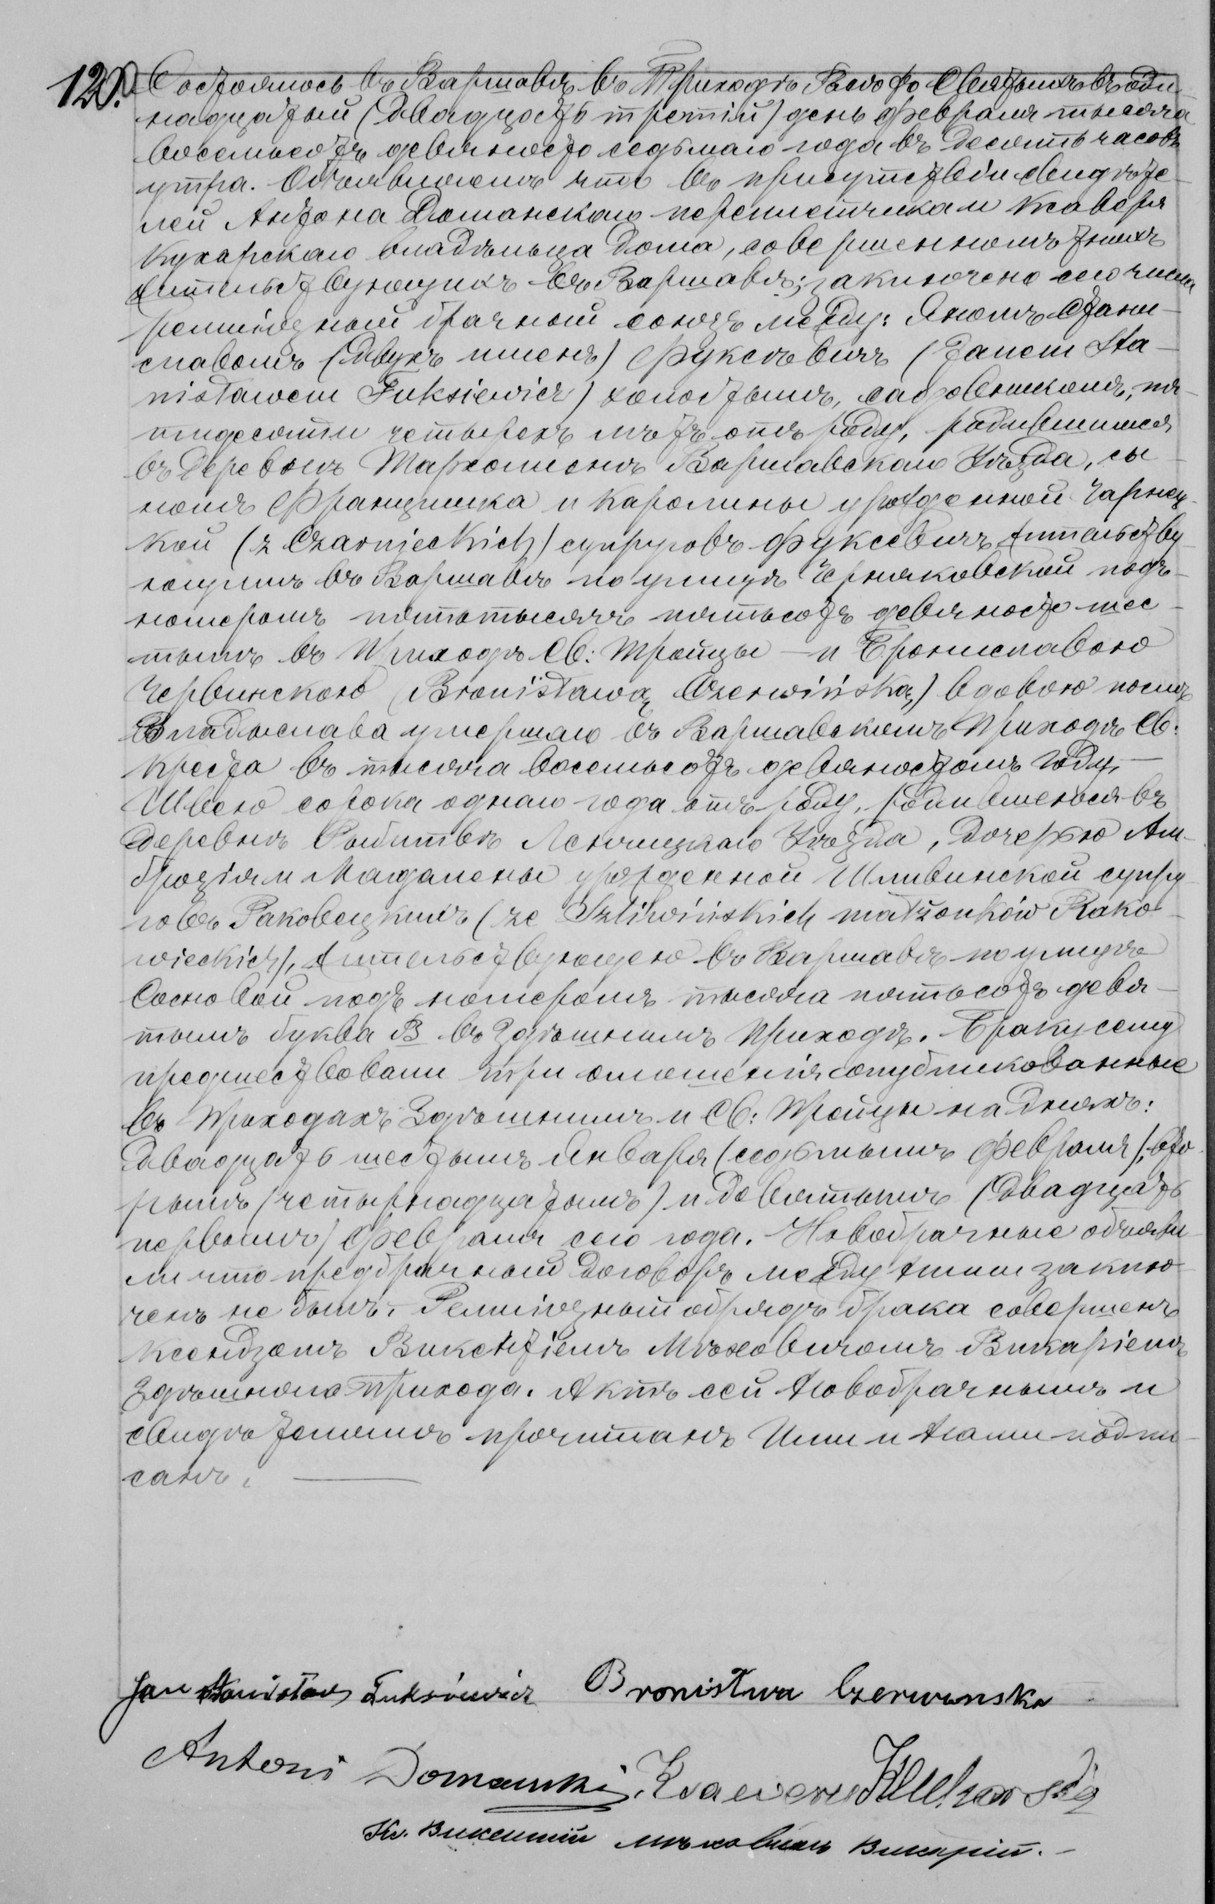 120. Состоялось въ Варшавѣ въ Приходѣ Всѣхъ Святыхъ въ оди-
надцатый (двадцать третій) день Февраля тысяча
восемьсотъ девяносто седьмаго года въ десять часовъ
утра. Объявляемъ что въ присутствіи свидѣте-
лей Антона Доманскаго переплетчика и Ксаверя
Кухарскаго владѣльца дома, совершеннолѣтнихъ
жительствующихъ въ Варшавѣ; заключено сего числа
религіозный брачный союзъ между: Яномъ Стани-
славомъ (двухъ именъ) Фуксѣвичъ (Janem Sta-
nisławem Fuksiewicz) холостымъ, садовникомъ, пя-
тидесяти четырехъ лѣтъ отъ роду, родившимся
въ деревнѣ Варшавскаго Уѣзда, сы-
номъ Францишка и Каролины урожденной Чарнец-
кой (z Czarnieckich) супруговъ Фуксевичъ, жительству-
ющимъ въ Варшавѣ по улицѣ Черняковской подъ
номеромъ пятьтысячъ пятьсотъ девяносто шес-
тымъ въ Приходѣ Св: Тройцы — и Брониславою
Червинскою (Bronisławą Czerwińską,) вдовою послѣ
Владыслава умершаго въ Варшавскомъ Приходѣ Св:
Креста въ тысяча восемьсотъ девяностомъ году, —
Швеею сорока однаго года отъ роду, родившеюся въ
деревнѣ Рыбитвы Ленчицкаго Уѣзда, дочерью Ам-
брозія и Магдалены урожденной Шливинской супру-
говъ Раковецкихъ (ze Szliwińskich małżonków Rako-
wieckich), жительствующею въ Варшавѣ по улицѣ
Сосновой подъ номеромъ тысяча пятьсотъ девя-
тымъ буква В въ здѣшнимъ Приходѣ. Браку сему
предшествовали три оглашенія опубликованные
въ Приходахъ Здѣшнимъ и Св: Тройцы на дняхъ:
двадцать шестымъ Января (седьмымъ Февраля), вто-
рымъ (четырнадцатымъ) и девятымъ (двадцать
первымъ) Февраля сего года. Новобрачные объяви-
ли что предбрачный договоръ между ними заклю-
ченъ не былъ. Религіозный обрядъ брака совершенъ
Ксендзомъ Викентіемъ Мѣховичомъ Викаріемъ
Здѣшнего прихода. Актъ сей Новобрачнымъ и
свидѣтелямъ прочитанъ Ими и Нами подпи-
санъ.
Jan Stanisław Fuksiewicz Bronisłwa Czerwinska
Antoni Domanski, Ksawery Kucharski
Кс. Викентий Мѣховичъ Викарій.